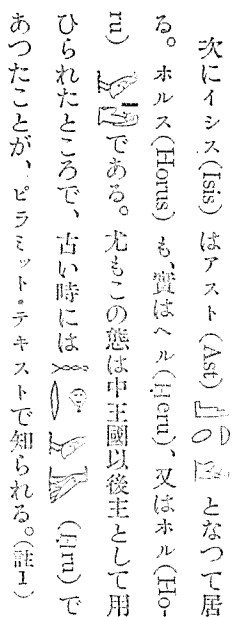 次にイシス(Isis)はアスト(Ast)となつて居
る。ホルス(Horus)も、實はヘル(Heru)、又はホル(Ho-
ru)である。尤もこの態は中王國以後主として用
ひられたところで、古い時には(Ḥru)で
あつたことが、ピラミット・テキストで知られる。(註1)